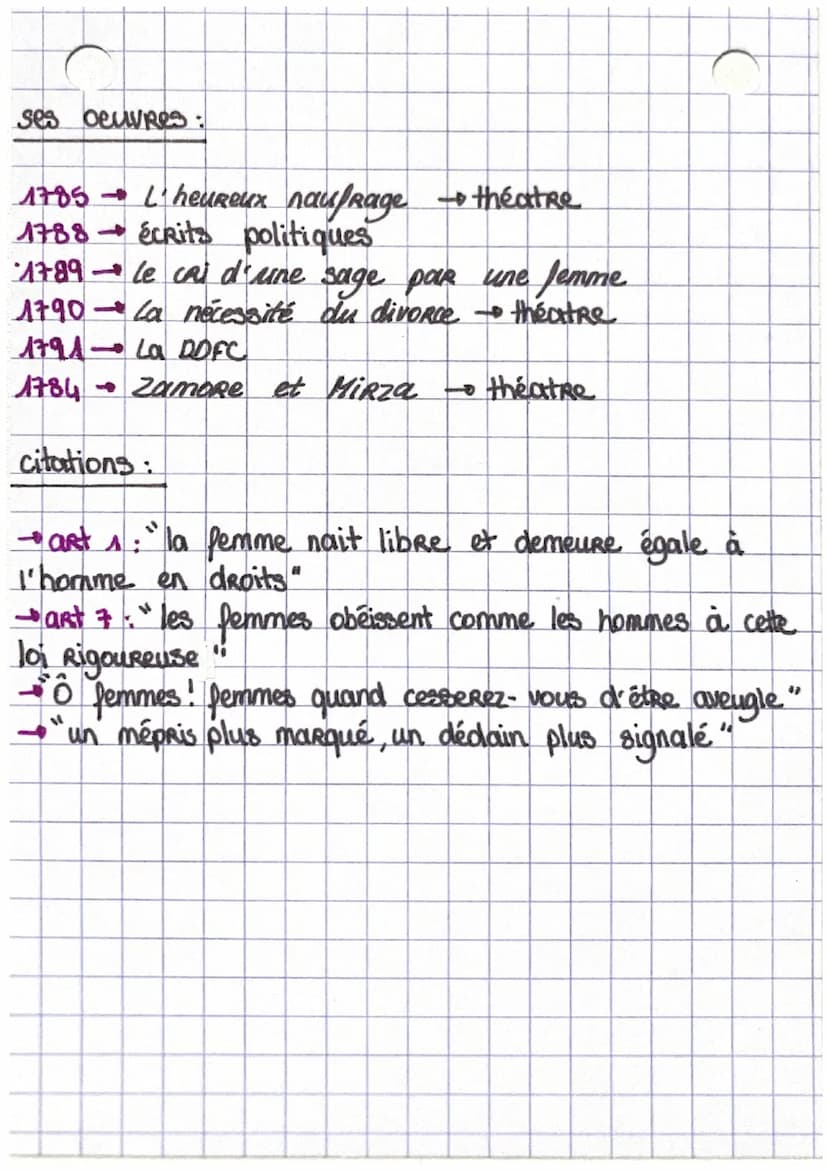 ses oeuvres :
1785 → L'heureux naufrage → théatre
1788 → écrits politiques
·1789 → le cri d'une sage par une femme
1790 → La nécessité du divorce → théatre
1791 → La DDFC
1784 → Zamore et Mirza → théatre
citations :
→ art 1 : "la femme nait libre et demeure égale à
l'homme en droits"
→ art 7 : "les femmes obéissent comme les hommes à cette
loi rigoureuse"
→ "Ô femmes! femmes quand cesserez-vous d'être aveugle"
→ "un mépris plus marqué, un dédain plus signalé"